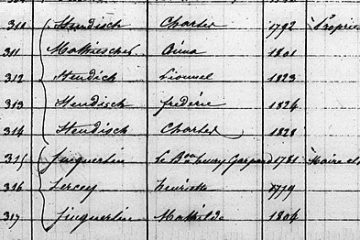 310 Hendisch Charles 1792 Proprié
311 Anna 1801
312 Hendich Lionnel 1823
313 Hendisch frédéric 1824
314 Hendisch Charles 1828
315 Jinquerlin le Bon henry Gaspard 1781 Maire et
316 Lercey henriette
317 Jinquerlin Mathilde 1804